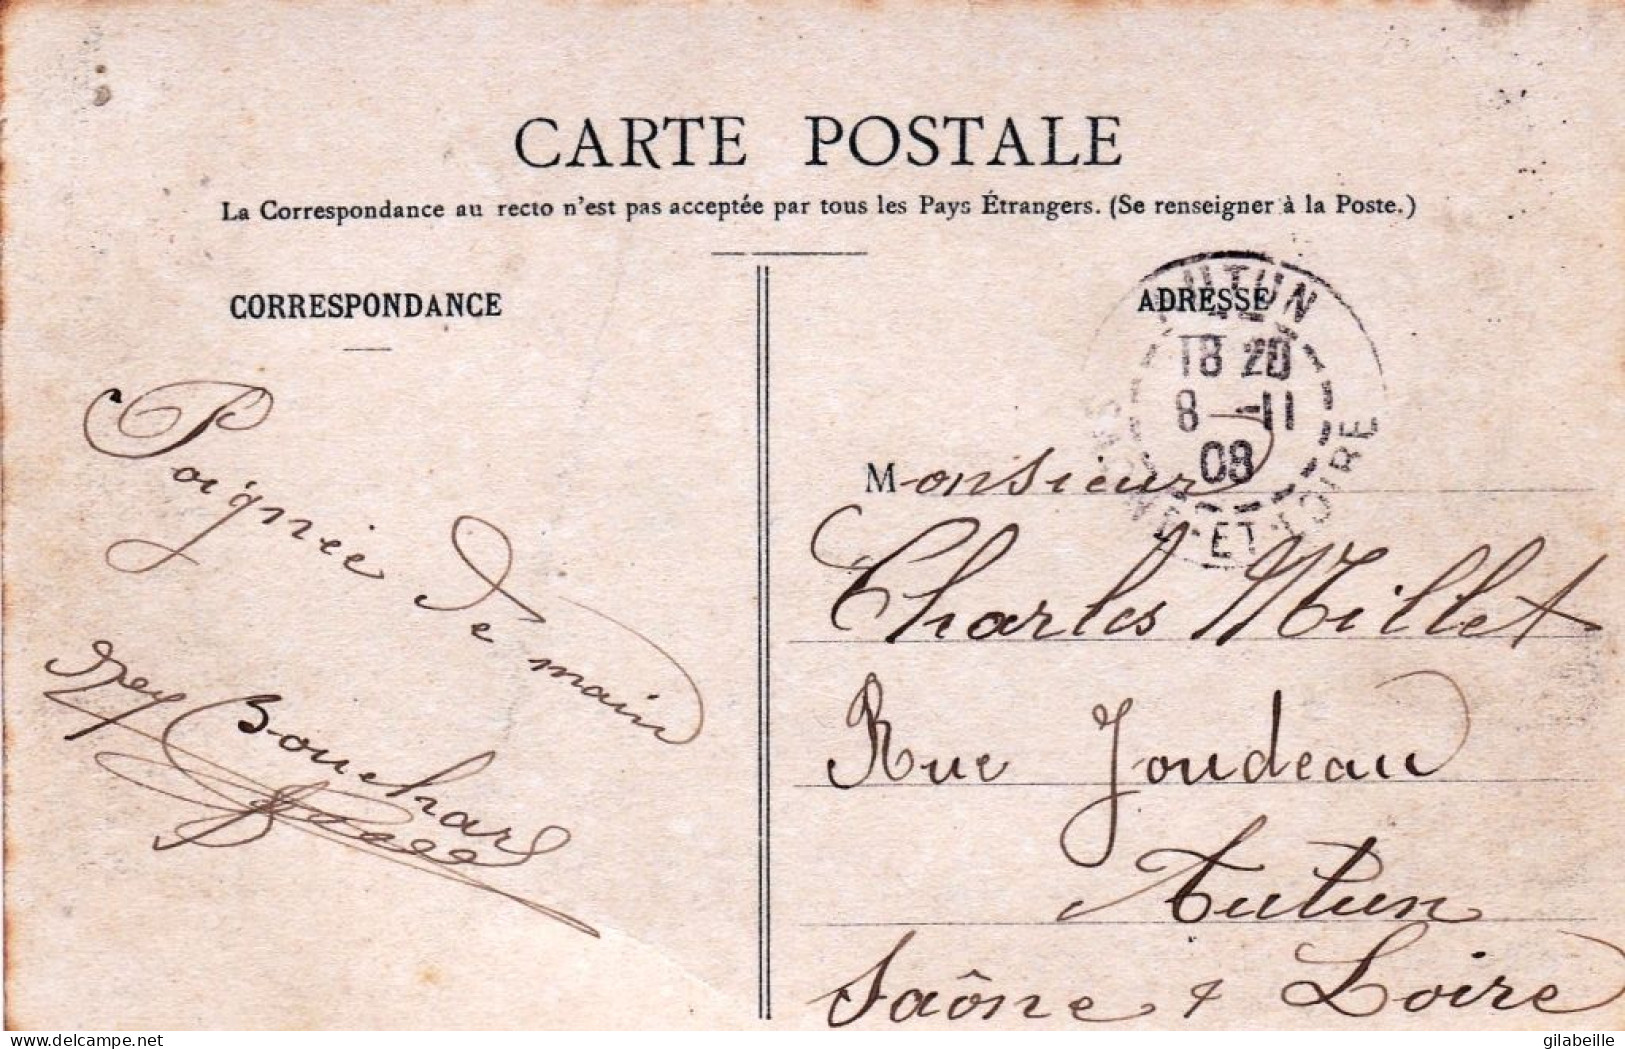 CARTE POSTALE
La Correspondance au recto n'est pas acceptée par tous les Pays Étrangers. (Se renseigner à la Poste.)
CORRESPONDANCE
ADRESSE
AUTUN
18 20
8 -11
08
SAÔNE-ET-LOIRE
Poignée de
main
Bouchard
Monsieur
Charles Millet
Rue Joudeau
Autun
Saône & Loire
www.delcampe.net
gilabeille